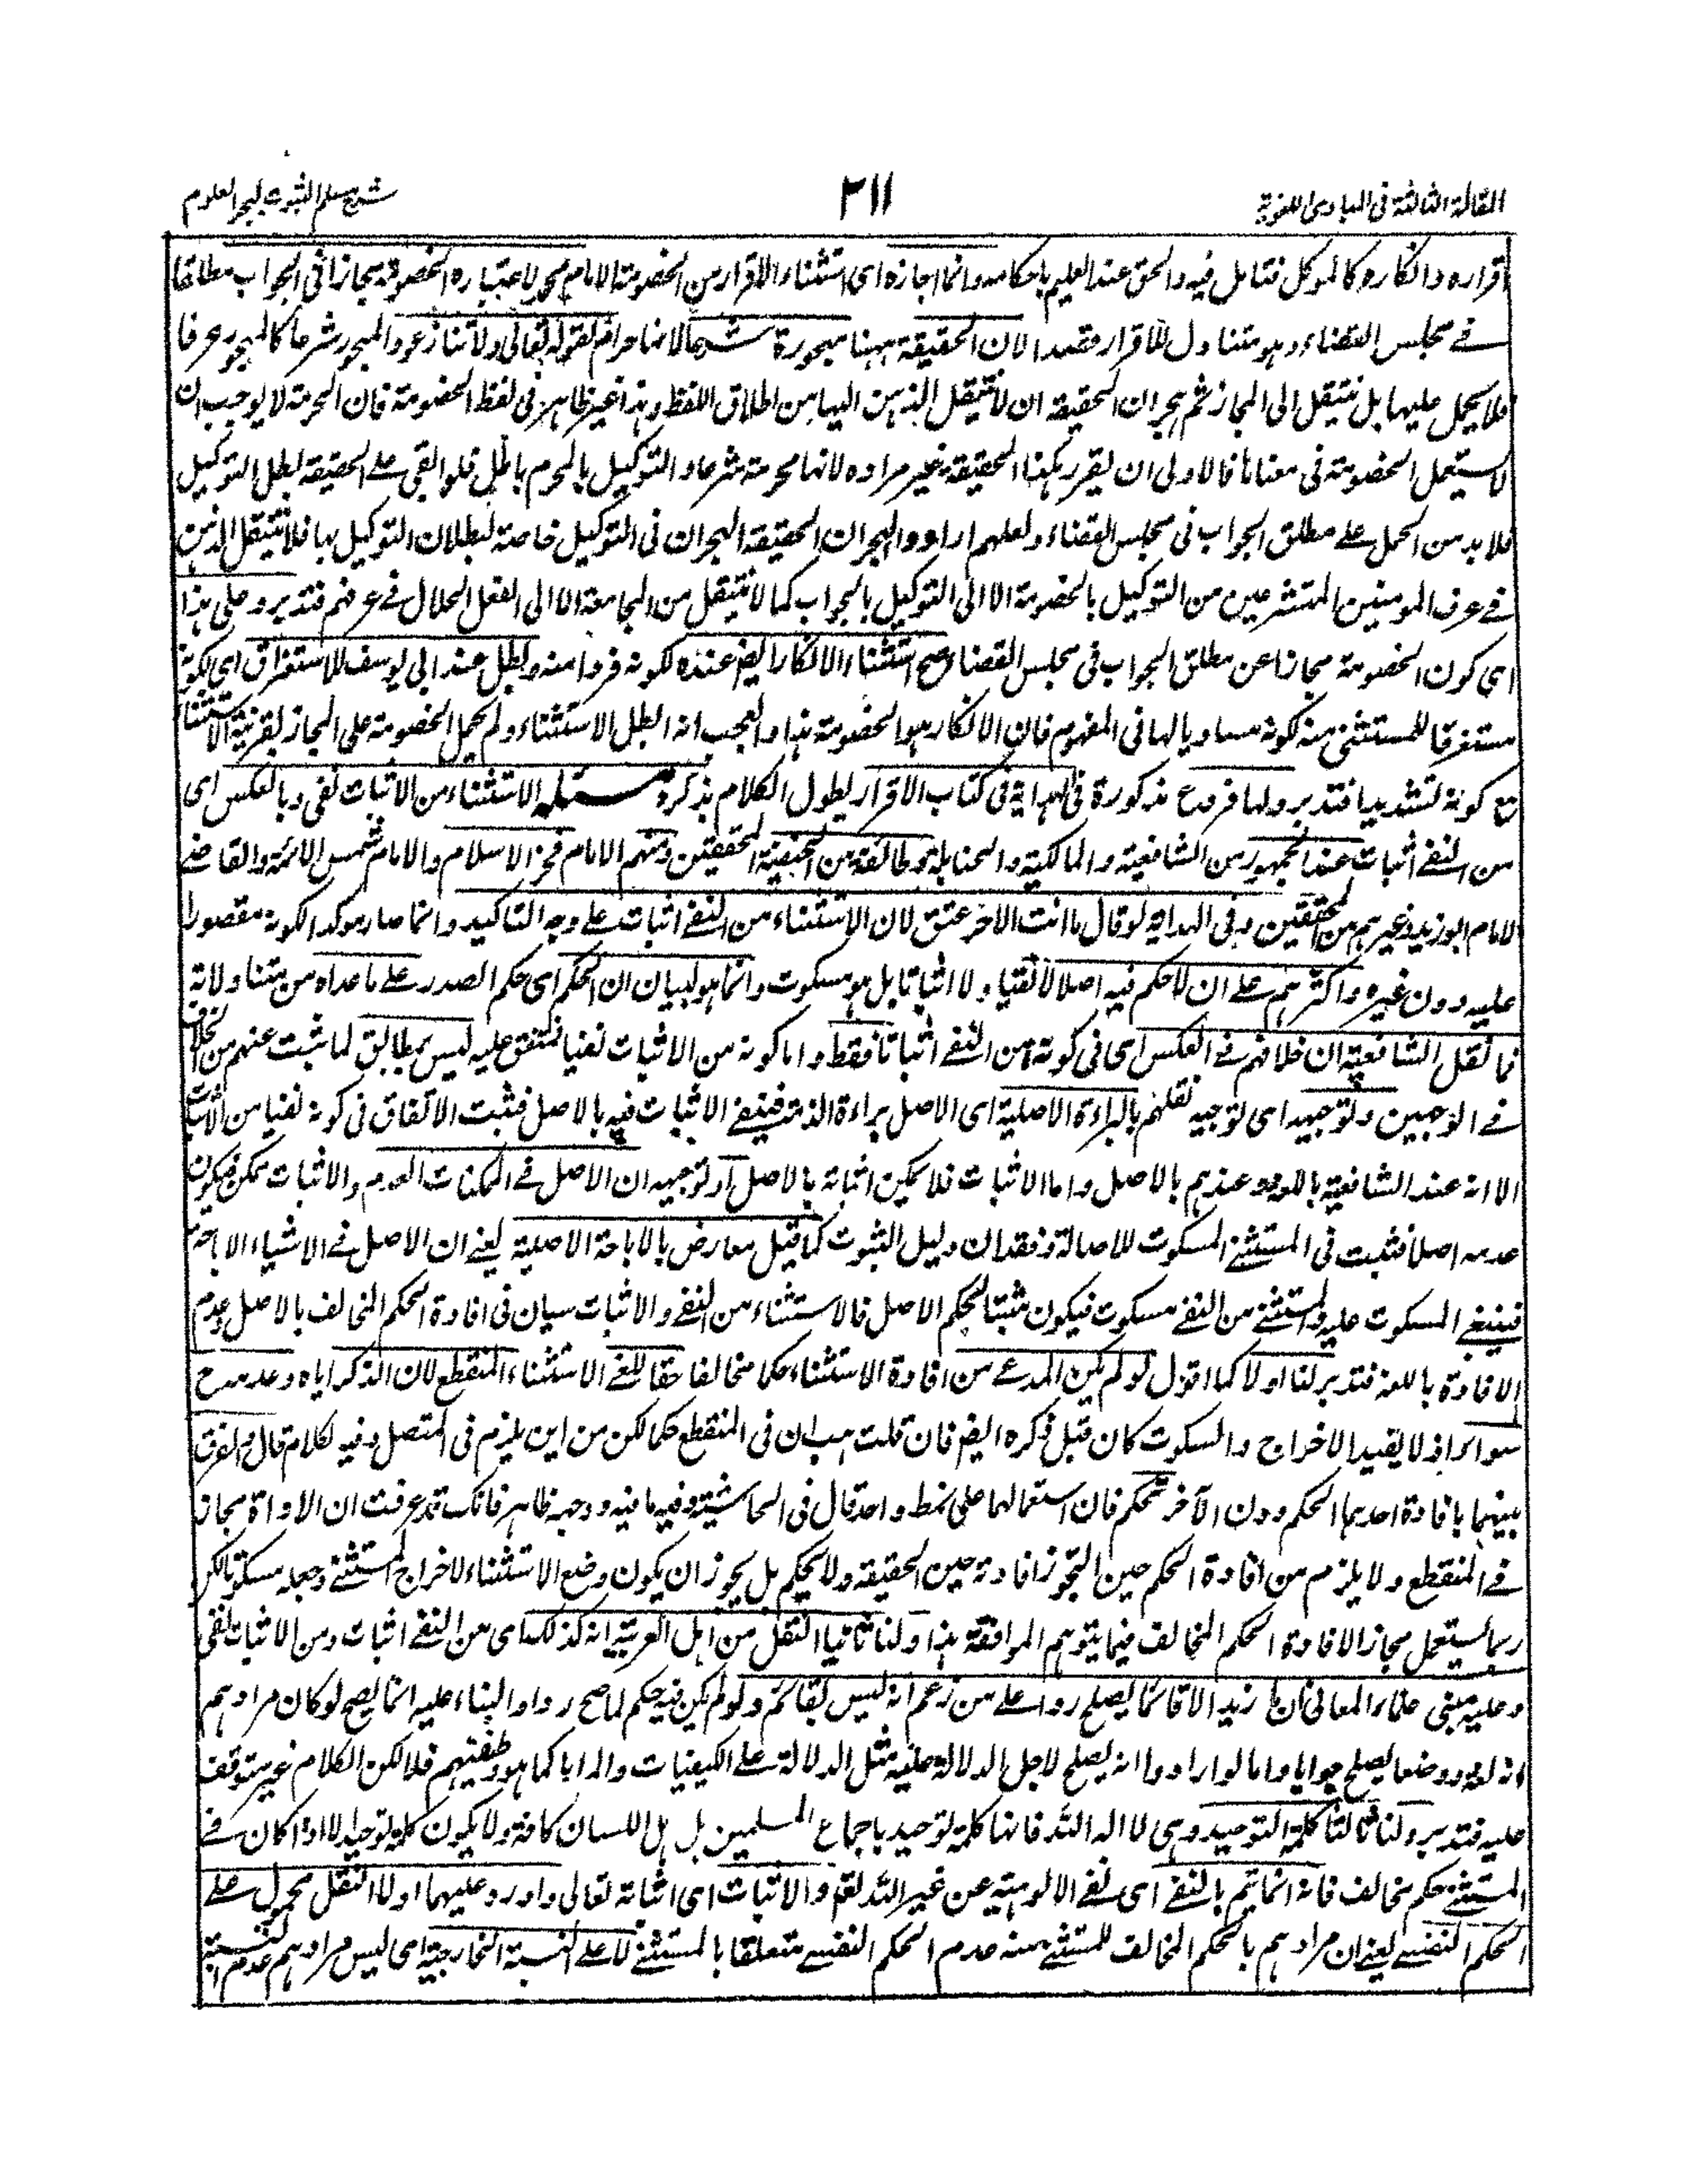 المقالة الثالثة فى المبادى اللغوية
٣١١
شرح مسلم الثبوت لبحر العلوم
اقراره وانكاره كالموكل فتامل فيه والحق عند العليم باحكامه وانما اجازه اى استثناء الاقرار من الخصومة الامام محمد لاعتباره الخصومة مجازا فى الجواب مطلقا
فے مجلس القضاء وہو متناول للاقرار مقيدا لان الحقيقة ہہنا مہجورة شرعا لانہا حرام لقوله تعالى ولا تنازعوا والمہجور شرعا كالمہجور عرفا
فلا يحمل عليہا بل ينتقل الى المجاز ثم ہجران الحقيقة ان لا ينتقل الذہن اليہا من اطلاق اللفظ وہذا غير ظاہر فى لفظ الخصومة فان الحرمة لا يوجب ان
لا يستعمل الخصومة فى معناہا فالاولى ان يقرر ہكذا الحقيقة غير مراده لانہا محرمة شرعا والتوكيل بالمحرم باطل فلو ابقى على الحقيقة لبطل التوكيل
فلا بد من الحمل علے مطلق الجواب فى مجلس القضاء ولعلہم ارادوا بہجران الحقيقة الہجران فى التوكيل خاصة لبطلان التوكيل بہا فلا ينتقل الذہن
فے عرف المومنين المتشرعين من التوكيل بالخصومة الا الى التوكيل بالجواب كما لا ينتقل من المجامعة الا الى الفعل الحلال فے عرفہم فتدبر وعلى ہذا
اى كون الخصومة مجازا عن مطلق الجواب فى مجلس القضاء صح استثناء الانكار ايضا عنده لكونه فردا منه وبطل عند ابى يوسف للاستغراق اى لكونه
مستغرقا للمستثنى منه كونه مساويا لہا فى المفہوم فان الانكار ہو الخصومة ہذا والعجب انه ابطل الاستثناء ولم يحمل الخصومة على المجاز بقرينة الاستثناء
مع كونه لتشديدا فتدبر ولہا فروع مذكورة فى الہداية فى كتاب الاقرار يطول الكلام بذكره مسئلہ الاستثناء من الاثبات نفى وبالعكس اى
من النفے اثبات عند الجمہور من الشافعية والمالكية والحنابلة وطائفة من الحنفية المحققين ومنہم الامام فخر الاسلام والامام شمس الائمة والقاضے
الامام ابو زيد وغيرہم من المحققين وفى الہداية لو قال ما انت الا حر عتق لان الاستثناء من النفے اثبات علے وجه التاكيد وانما صار موكدا لكونه مقصورا
عليه دون غيره واكثرہم علے ان لا حكم فيه اصلا لا نفيا ولا اثباتا بل ہو مسكوت وانما ہو لبيان ان الحكم اى حكم الصدر علے ما عداه من متناولاته
فما نقل الشافعية ان خلافہم فے العكس اى فى كونه من النفے اثباتا فقط واما كونه من الاثبات نفيا فمتفق عليه ليس بمطابق لما ثبت عنہم من الخلاف
فے الوجہين وتوجيہه اى توجيه نقلہم بالبراءة الاصلية اى الاصل براءة الذمة فينفے الاثبات فيه بالاصل فثبت الاتفاق فى كونه نفيا من الاثبات
الا انه عند الشافعية باللغة وعندہم بالاصل واما الاثبات فلا يمكن اثباته بالاصل او توجيہه ان الاصل فے الممكنات العدم والاثبات ممكن فيكون
عدمه اصلا فثبت فى المستثنے المسكوت للاصالة وفقدان دليل الثبوت كما قيل معارض بالاباحة الاصلية يعنے ان الاصل فے الاشياء الاباحة
فينبغے المسكوت عليه والمستثنے من النفے مسكوت فيكون مثبتا لحكم الاصل فالاستثناء من النفے والاثبات سيان فى افادة الحكم المخالف بالاصل وعدم
الافادة باللغة فتدبر لنا اولا كما اقول لو لم يكن المدعے من افادة الاستثناء حكما مخالفا حقا للغے الاستثناء المنقطع لان الذكر اياه وعدمه ح
سواء اذ لا يفيد الاخراج والسكوت كان قبل ذكره ايضا فان قلت ہب ان فى المنقطع حكما لكن من اين يلزم فى المتصل وفيه الكلام قال والفرق
بينہما بافادة احدہما الحكم دون الآخر تحكم فان استعمالہا على نمط واحد قال فى الحاشية وفيه ما فيه ووجہه ظاہر فانك قد عرفت ان الاداة مجاز
فے المنقطع ولا يلزم من افادة الحكم حين التجوز افادته حين الحقيقة ولا تحكم بل يجوز ان يكون وضع الاستثناء لاخراج المستثنے وجعله مسكوتا لكن
ربما يستعمل مجازا لافادة الحكم المخالف فيما يتوہم الموافقة ہذا ولنا ثانيا النقل من اہل العربية انه كذلك اى من النفے اثبات ومن الاثبات نفى
وعليه مبنى علماء المعانى ان ما زيد الا قائما يصلح ردا علے من زعم انه ليس بقائم ولو لم يكن فيه حكم لما صح ردا والبناء عليه انما يصح لو كان مرادہم
انه لغة ووضعا يصلح جوابا واما لو ارادوا انه يصلح لاجل الدلالة عليه مثل الدلالة علے الكيفيات والمزايا كما ہو وظيفتہم فلا لكن الكلام غير متوقف
عليه فتدبر ولنا ثالثا كلمة التوحيد وہى لا اله الا اللہ فانہا كلمة توحيد باجماع المسلمين بل اہل اللسان كافة ولا يكون كلمة توحيد الا اذا كان فے
المستثنے حكم مخالف فانه انما يتم بالنفے اى نفے الالوہية عن غير اللہ تعالى والاثبات اى اثباته تعالى واورد عليہما اولا النقل محمول علے
الحكم النفسے يعنے ان مرادہم بالحكم المخالف للمستثنے منه عدم الحكم النفسے متعلقا بالمستثنے لا علے النسبة الخارجية اى ليس مرادہم عدم النسبة